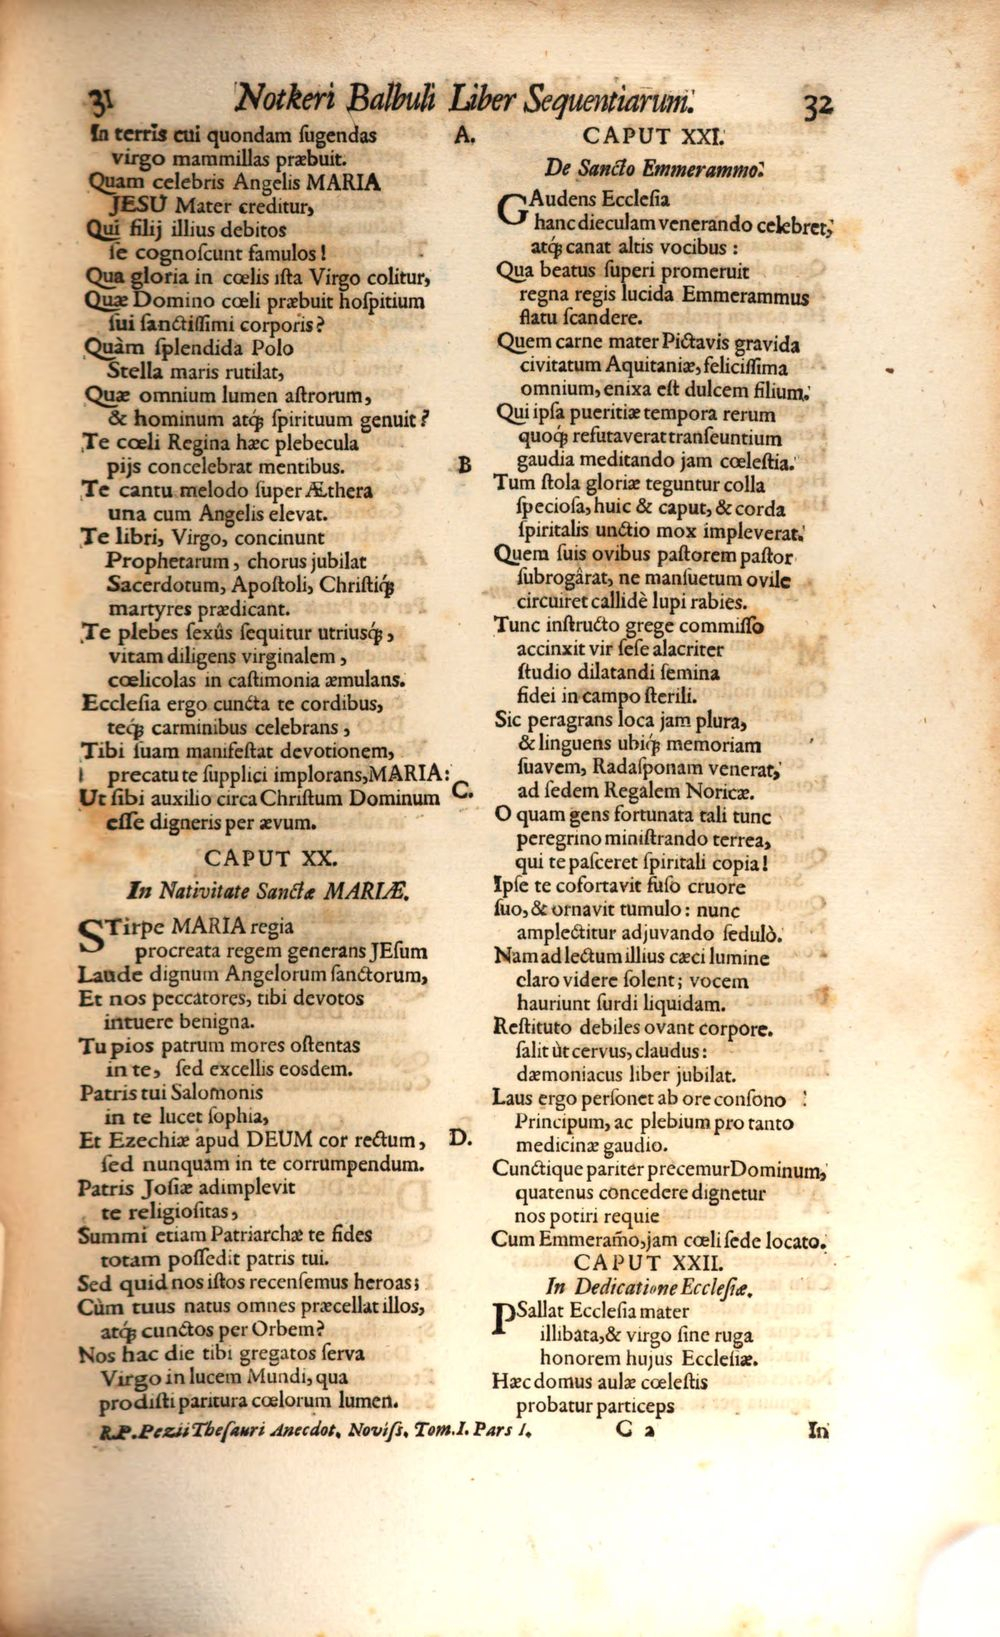 31 Notkeri Balbuli Liber Sequentiarum. 32
In terris cui quondam ſugendas
virgo mammillas præbuit.
Quam celebris Angelis MARIA
JESU Mater creditur,
Qui filij illius debitos
ſe cognoſcunt famulos!
Qua gloria in cœlis ıſta Virgo colitur,
Quæ Domino cœli præbuit hoſpitium
ſui ſanctiſſimi corporis?
Quàm ſplendida Polo
Stella maris rutilat,
Quæ omnium lumen aſtrorum,
& hominum atq́; ſpirituum genuit?
Te cœli Regina hæc plebecula
pijs concelebrat mentibus.
Te cantu melodo ſuper Æthera
una cum Angelis elevat.
Te libri, Virgo, concinunt
Prophetarum, chorus jubilat
Sacerdotum, Apoſtoli, Chriſtiq́;
martyres prædicant.
Te plebes ſexûs ſequitur utriusq́;,
vitam diligens virginalem,
cœlicolas in caſtimonia æmulans.
Eccleſia ergo cuncta te cordibus,
teq́; carminibus celebrans,
Tibi ſuam manifeſtat devotionem,
precatu te ſupplici implorans, MARIA:
Ut ſibi auxilio circa Chriſtum Dominum
eſſe digneris per ævum.
CAPUT XX.
In Nativitate Sanctæ MARIÆ.
STirpe MARIA regia
procreata regem generans JEſum
Laude dignum Angelorum ſanctorum,
Et nos peccatores, tibi devotos
intuere benigna.
Tu pios patrum mores oſtentas
in te, ſed excellis eosdem.
Patris tui Salomonis
in te lucet ſophia,
Et Ezechiæ apud DEUM cor rectum,
ſed nunquam in te corrumpendum.
Patris Joſiæ adimplevit
te religioſitas,
Summi etiam Patriarchæ te fides
totam poſſedit patris tui.
Sed quid nos iſtos recenſemus heroas;
Cùm tuus natus omnes præcellat illos,
atq́; cunctos per Orbem?
Nos hac die tibi gregatos ſerva
Virgo in lucem Mundi, qua
prodiſti paritura cœlorum lumen.
A.
B
C.
D.
CAPUT XXI.
De Sancto Emmerammo.
GAudens Eccleſia
hanc dieculam venerando celebret,
atq́; canat altis vocibus:
Qua beatus ſuperi promeruit
regna regis lucida Emmerammus
flatu ſcandere.
Quem carne mater Pictavis gravida
civitatum Aquitaniæ, feliciſſima
omnium, enixa eſt dulcem filium.
Qui ipſa pueritiæ tempora rerum
quoq́; refutaverat tranſeuntium
gaudia meditando jam cœleſtia.
Tum ſtola gloriæ teguntur colla
ſpecioſa, huic & caput, & corda
ſpiritalis unctio mox impleverat.
Quem ſuis ovibus paſtorem paſtor
ſubrogârat, ne manſuetum ovile
circuiret callidè lupi rabies.
Tunc inſtructo grege commiſſo
accinxit vir ſeſe alacriter
ſtudio dilatandi ſemina
fidei in campo ſterili.
Sic peragrans loca jam plura,
& linguens ubiq́; memoriam
ſuavem, Radaſponam venerat,
ad ſedem Regalem Noricæ.
O quam gens fortunata tali tunc
peregrino miniſtrando terrea,
qui te paſceret ſpiritali copia!
Ipſe te cofortavit fuſo cruore
ſuo, & ornavit tumulo: nunc
amplectitur adjuvando ſedulò.
Nam ad lectum illius cæci lumine
claro videre ſolent; vocem
hauriunt ſurdi liquidam.
Reſtituto debiles ovant corpore.
ſalit ùt cervus, claudus:
dæmoniacus liber jubilat.
Laus ergo perſonet ab ore conſono
Principum, ac plebium pro tanto
medicinæ gaudio.
Cunctique pariter precemur Dominum,
quatenus concedere dignetur
nos potiri requie
Cum Emmeram̃o, jam cœli ſede locato.
CAPUT XXII.
In Dedicatione Eccleſiæ.
PSallat Eccleſia mater
illibata, & virgo ſine ruga
honorem hujus Eccleſiæ.
Hæc domus aulæ cœleſtis
probatur particeps
R.P. Pezii Theſauri Anecdot. Noviſs. Tom. I. Pars I. C 2 In